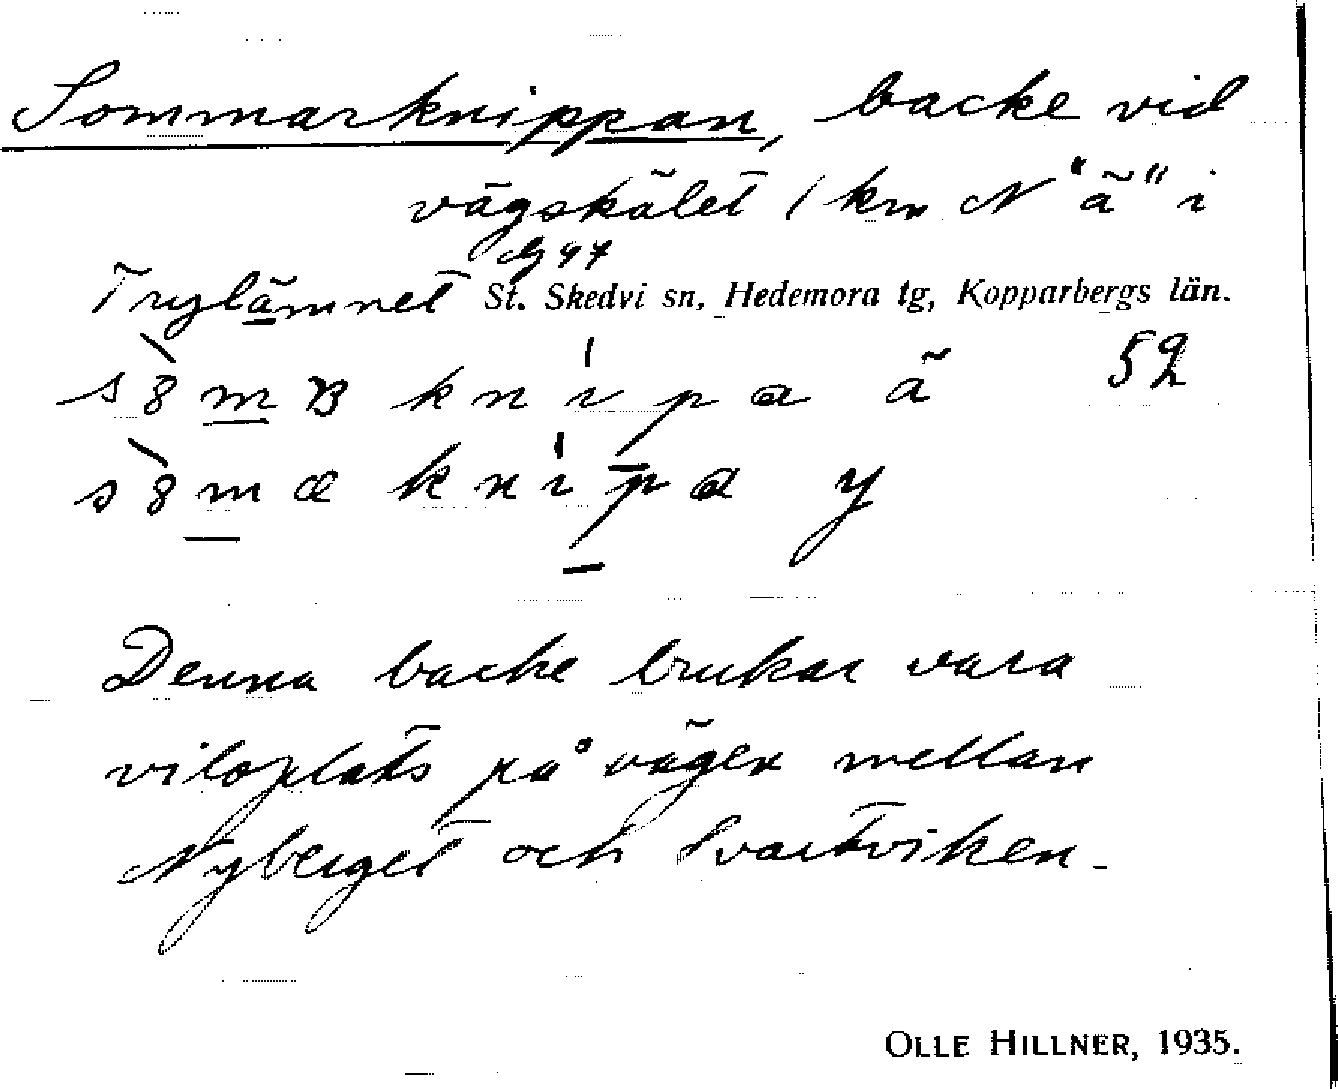 Sommarknippan, backe vid
vägskälet 1 km N "ä" i
97
Trylämnet St. Skedvi sn, Hedemora tg, Kopparbergs län.
52
Denna backe brukar vara
viloplats på vägen mellan
Nyberget och Svartviken.
OLLE HILLNER, 1935.